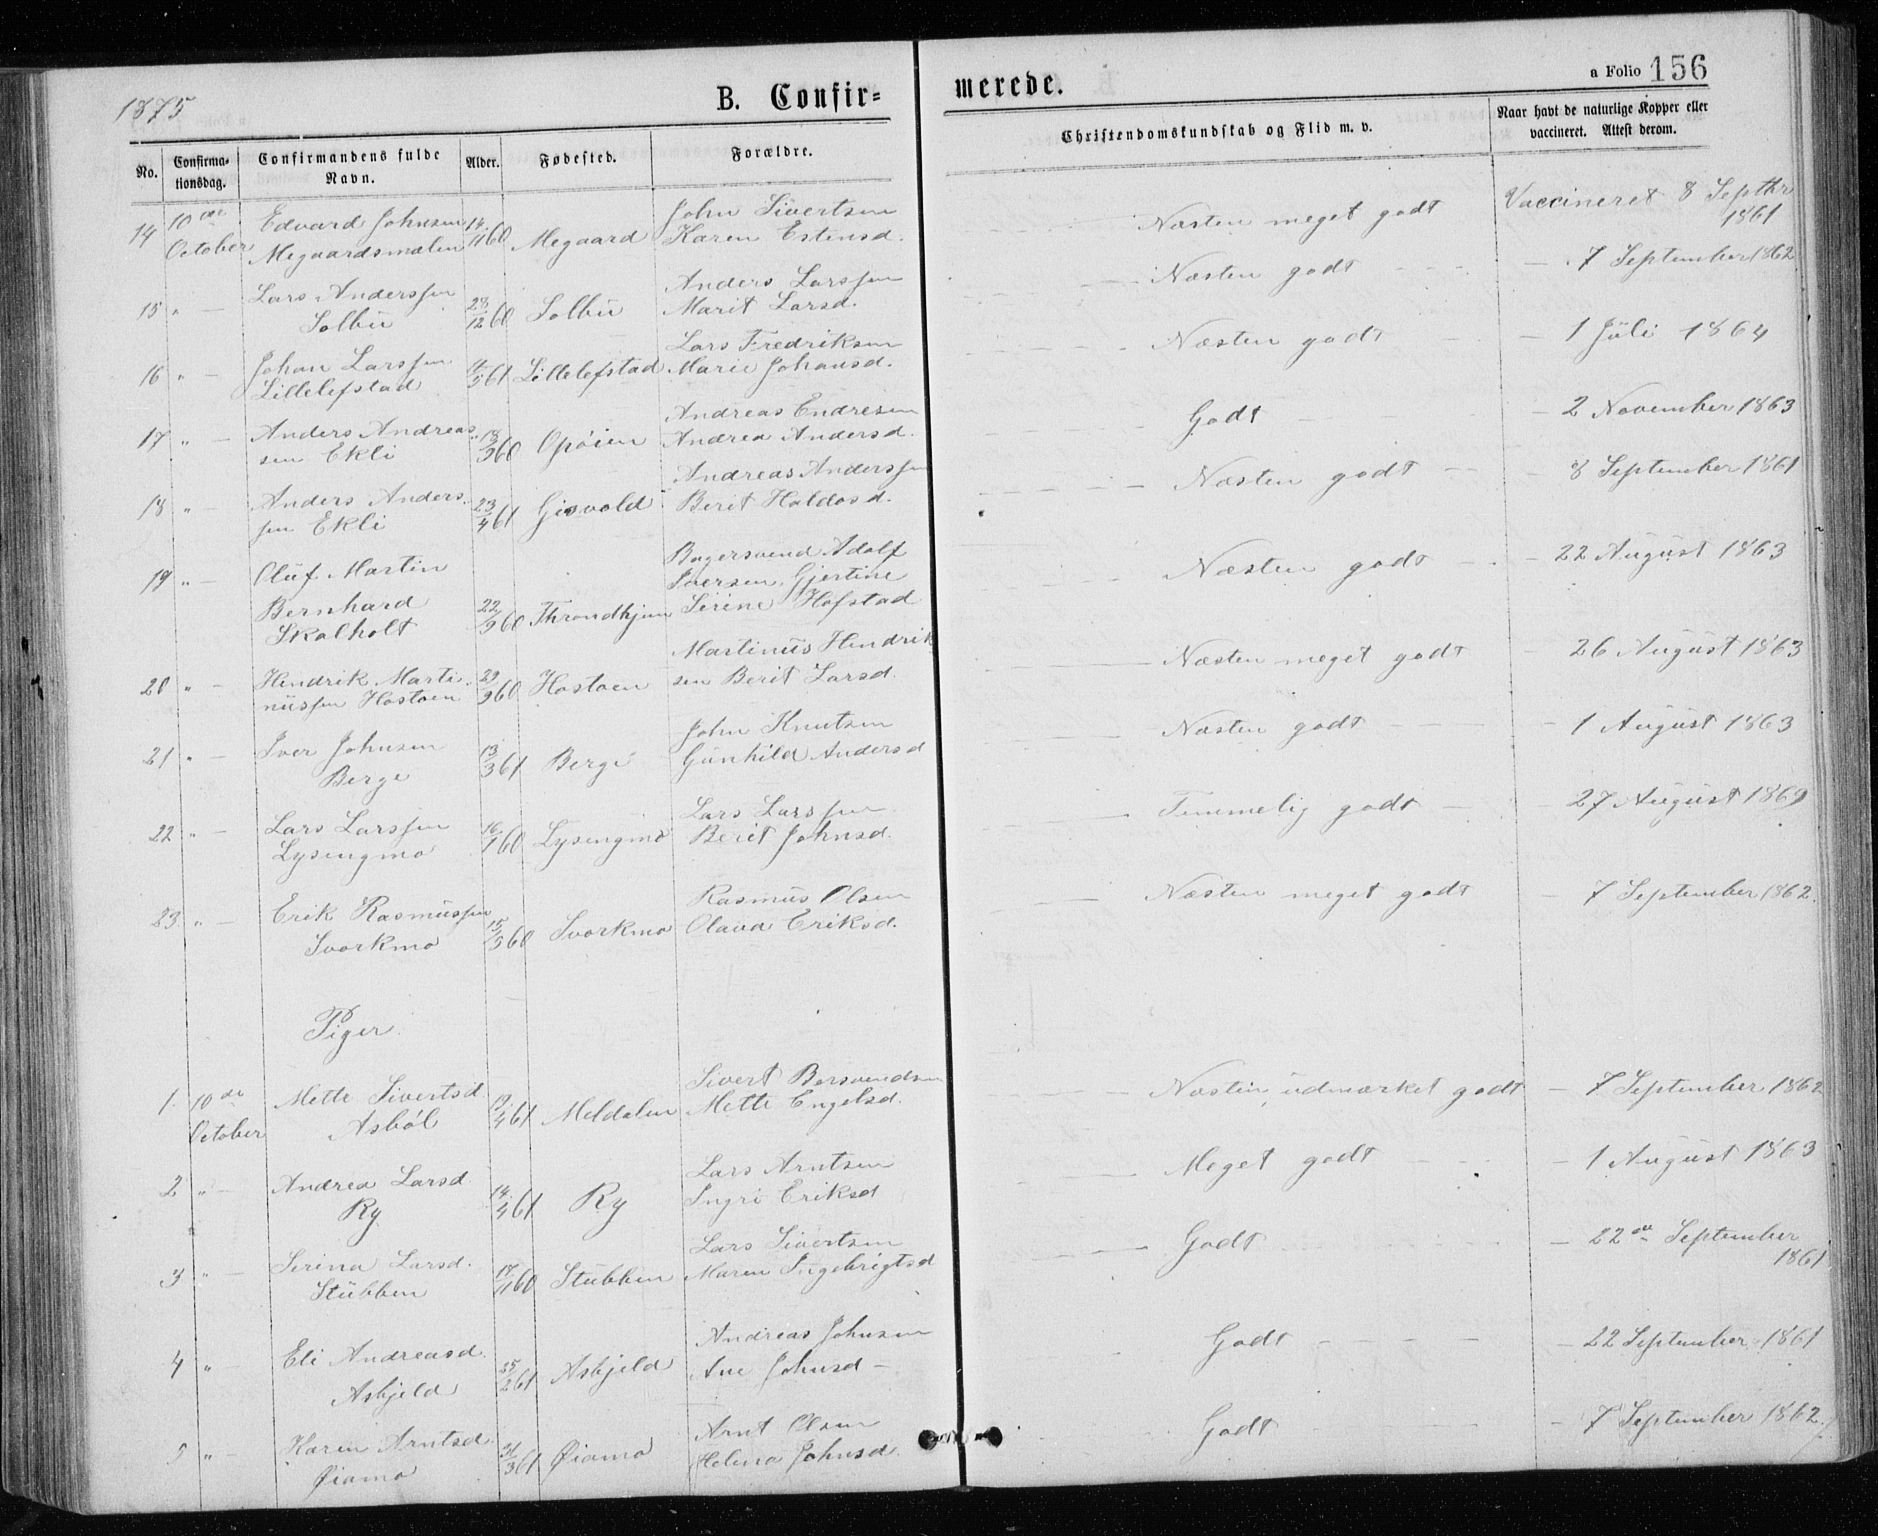 1875
B. Confir=
merede.
a Folio 156
No.
Confirma-
tionsdag.
Confirmandens fulde
Navn.
Alder.
Fødested.
Forældre.
Christendomskundskab og Flid m. v.
Naar havt de naturlige Kopper eller
vaccineret. Attest derom.
14 10de October Edvard Johnsen 14/11 60 Megaard John Sivertsen Næsten meget godt Vaccineret 8 Septbr
Megaardsmælen Karen Estensd. 1861
15 " — Lars Anderssen 28/12 60 Solbu Anders Larssen Næsten godt — 7 September 1862
Solbu Marit Larsd.
16 " — Johan Larssen /5 61 Lillelefstad Lars Fredriksen Næsten godt — 1 Juli 1864
Lillelefstad Marie Johansd.
17 " — Anders Andreas 18/9 60 Opøien Andreas Endresen Godt — 2 November 1863
sen Ekli Andrea Andersd.
18 " — Anders Anders 23/4 61 Gisvold Andreas Anderssen Næsten godt — 8 September 1861
sen Ekli Berit Haldosd.
19 " — Oluf Martin Bagersvend Adolf Næsten godt — 22 August 1863
Bernhard 22/9 60 Throndhjem Iversen, Gjertine
Skalholt Serine Hofstad
20 " — Hendrik Marti 29/9 60 Hostoen Martinus Hendrik Næsten meget godt — 26 August 1863
nussen Hostoen sen Berit Larsd.
21 " — Iver Johnsen 13/3 61 Berge John Knutsen Næsten godt — 1 August 1863
Berge Gunhild Andersd
22 " — Lars Larssen 16/1 60 Lysengmo Lars Larssen Temmelig godt — 27 August 1869
Lysengmo Berit Johnsd.
23 " — Erik Rasmussen 15/3 60 Svorkmo Rasmus Olsen Næsten meget godt — 7 September 1862.
Svorkmo Olava Eriksd.
Piger.
1. 10de October Mette Sivertsd 19/4 61 Meldalen Sivert Bersvendsen Næsten udmærket godt — 7 September 1862
Asbøl Mette Engelsd.
2 " — Andrea Larsd 14/4 61 Ry Lars Arntsen Meget godt — 1 August 1863
Ry Ingri Eriksd
3 " — Serina Larsd. /11 60 Stubben Lars Sivertsen Godt — 22de September
Stubben Maren Ingebrigtsd 1861
4 " — Eli Andreasd. 25/2 61 Asbjeld Andreas Johnsen Godt — 22 September 1861
Asbjeld Ane Johnsd —
5 " — Karen Arntsd. 31/3 61 Øiamo Arnt Olsen Godt — 7 September 1862.
Øiamo Helena Johnsd.